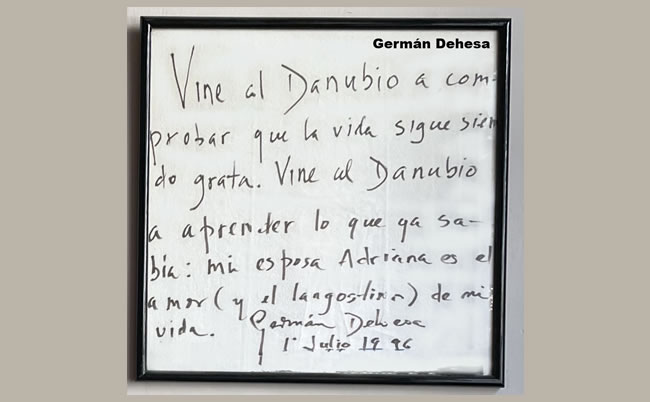 Germán Dehesa
Vine al Danubio a com-
probar que la vida sigue sien
do grata. Vine al Danubio
a aprender lo que ya sa-
bía: mi esposa Adriana es el
amor (y el langostino) de mi
vida. Germán Dehesa
1º Julio 1996